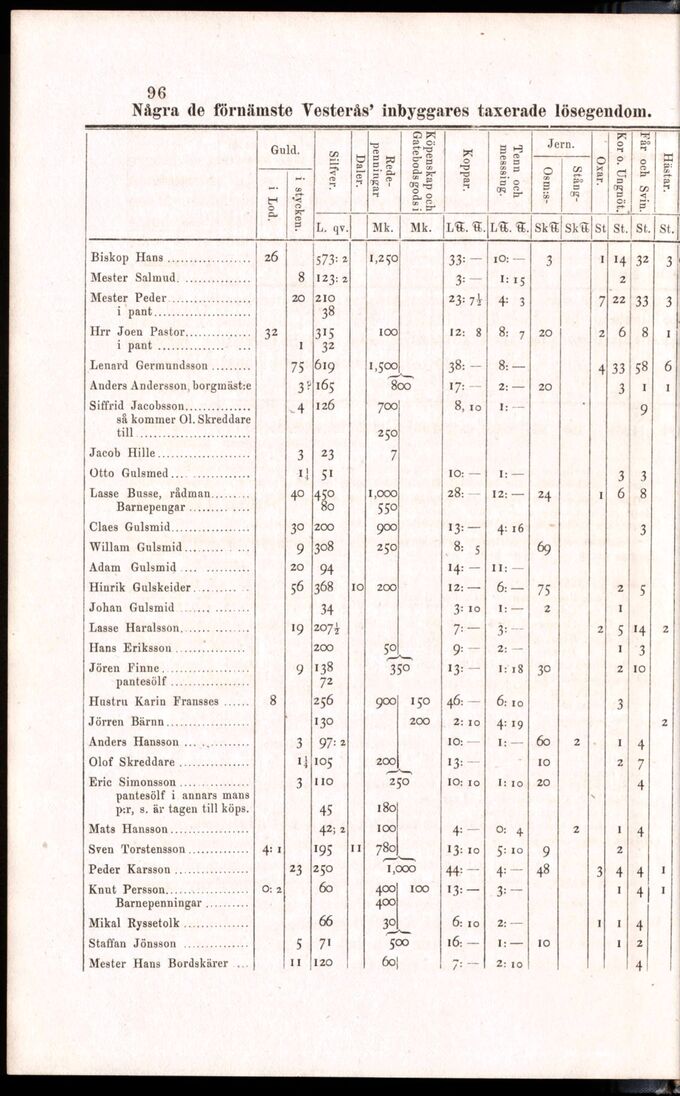 96
Några de förnämste Vesterås' inbyggares taxerade lösegendom.
Guld. Silfver. Daler. Rede-penningar Köpenskap och Gatebodsgods i Koppar. Tenn och messsing. Jern. Oxar. Kor o. Ungnöt. Får och Svin. Hästar.
i Lod. i stycken. Osm:s- Stång-
L. qv. Mk. Mk. L℔. ℔. L℔. ℔. Sk℔ Sk℔ St St. St. St.
Biskop Hans 26 573: 2 1,250 33: — 10: — 3 1 14 32 3
Mester Salmud 8 123: 2 3: — 1: 15 2
Mester Peder 20 210 23: 7½ 4: 3 7 22 33 3
i pant 38
Hrr Joen Pastor 32 315 100 12: 8 8: 7 20 2 6 8 1
i pant 1 32
Lenard Germundsson 75 619 1,500 38: — 8: — 4 33 58 6
Anders Andersson, borgmäst:e 3? 165 800 17: — 2: — 20 3 1 1
Siffrid Jacobsson 4 126 700 8, 10 1: — 9
så kommer Ol. Skreddare
till 250
Jacob Hille 3 23 7
Otto Gulsmed 1½ 51 10: — 1: — 3 3
Lasse Busse, rådman 40 450 1,000 28: — 12: — 24 1 6 8
Barnepengar 80 550
Claes Gulsmid 30 200 900 13: — 4: 16 3
Willam Gulsmid 9 308 250 8: 5 69
Adam Gulsmid 20 94 14: — 11: —
Hinrik Gulskeider 56 368 10 200 12: — 6: — 75 2 5
Johan Gulsmid 34 3: 10 1: — 2 1
Lasse Haralsson 19 207½ 7: — 3: — 2 5 14 2
Hans Eriksson 200 50 9: — 2: — 1 3
Jören Finne 9 138 350 13: — 1: 18 30 2 10
pantesölf 72
Hustru Karin Fransses 8 256 900 150 46: — 6: 10 3
Jörren Bärnn 130 200 2: 10 4: 19 2
Anders Hansson 3 97: 2 10: — 1: — 60 2 1 4
Olof Skreddare 1¼ 105 200 13: — 10 2 7
Eric Simonsson 3 110 250 10: 10 1: 10 20 4
pantesölf i annars mans
p:r, s. är tagen till köps. 45 180
Mats Hansson 42; 2 100 4: — 0: 4 2 1 4
Sven Torstensson 4: 1 195 11 780 13: 10 5: 10 9 2
Peder Karsson 23 250 1,000 44: — 4: — 48 3 4 4 1
Knut Persson 0: 2 60 400 100 13: — 3: — 1 4 1
Barnepenningar 400
Mikal Ryssetolk 66 30 6: 10 2: — 1 1 4
Staffan Jönsson 5 71 500 16: — 1: — 10 1 2
Mester Hans Bordskärer 11 120 60 7: — 2: 10 4